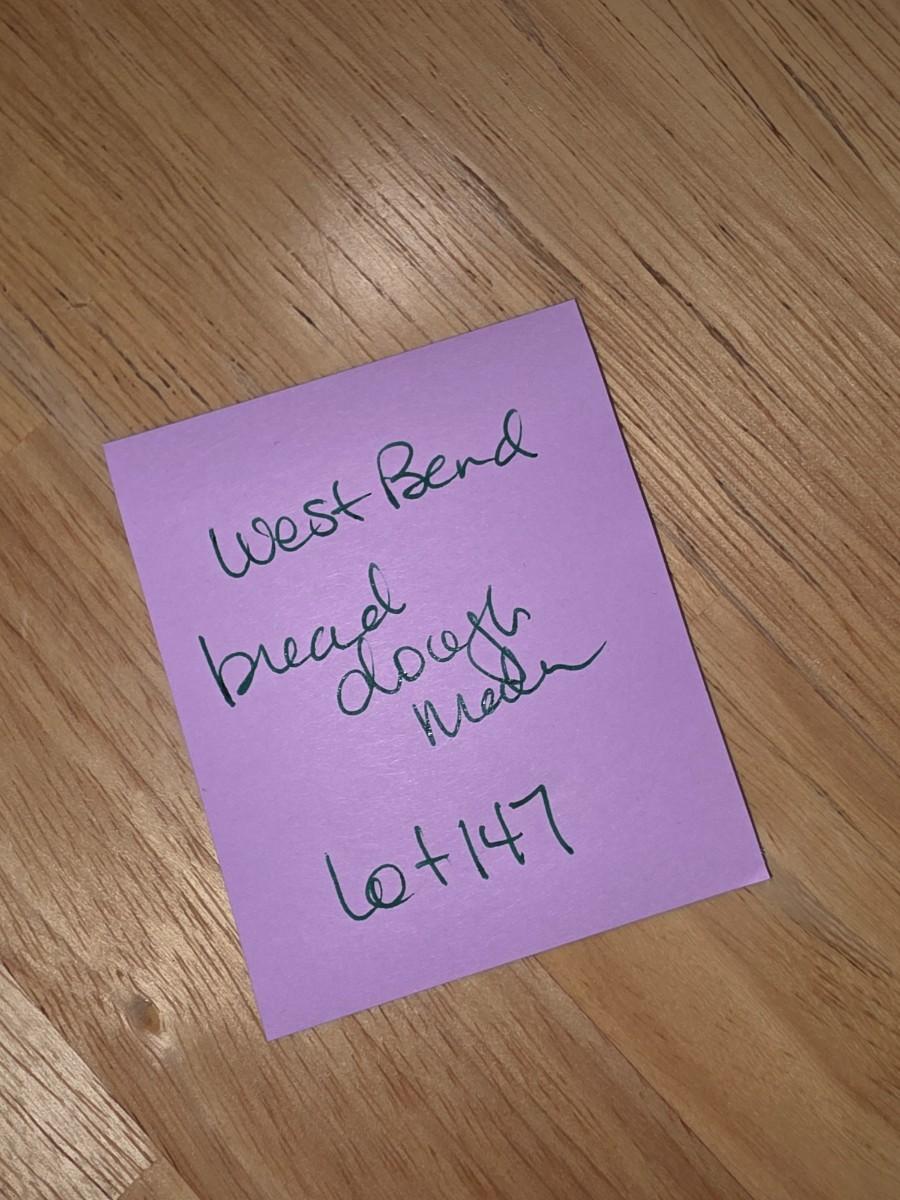 West Bend
bread
dough
Maker
Lot 147